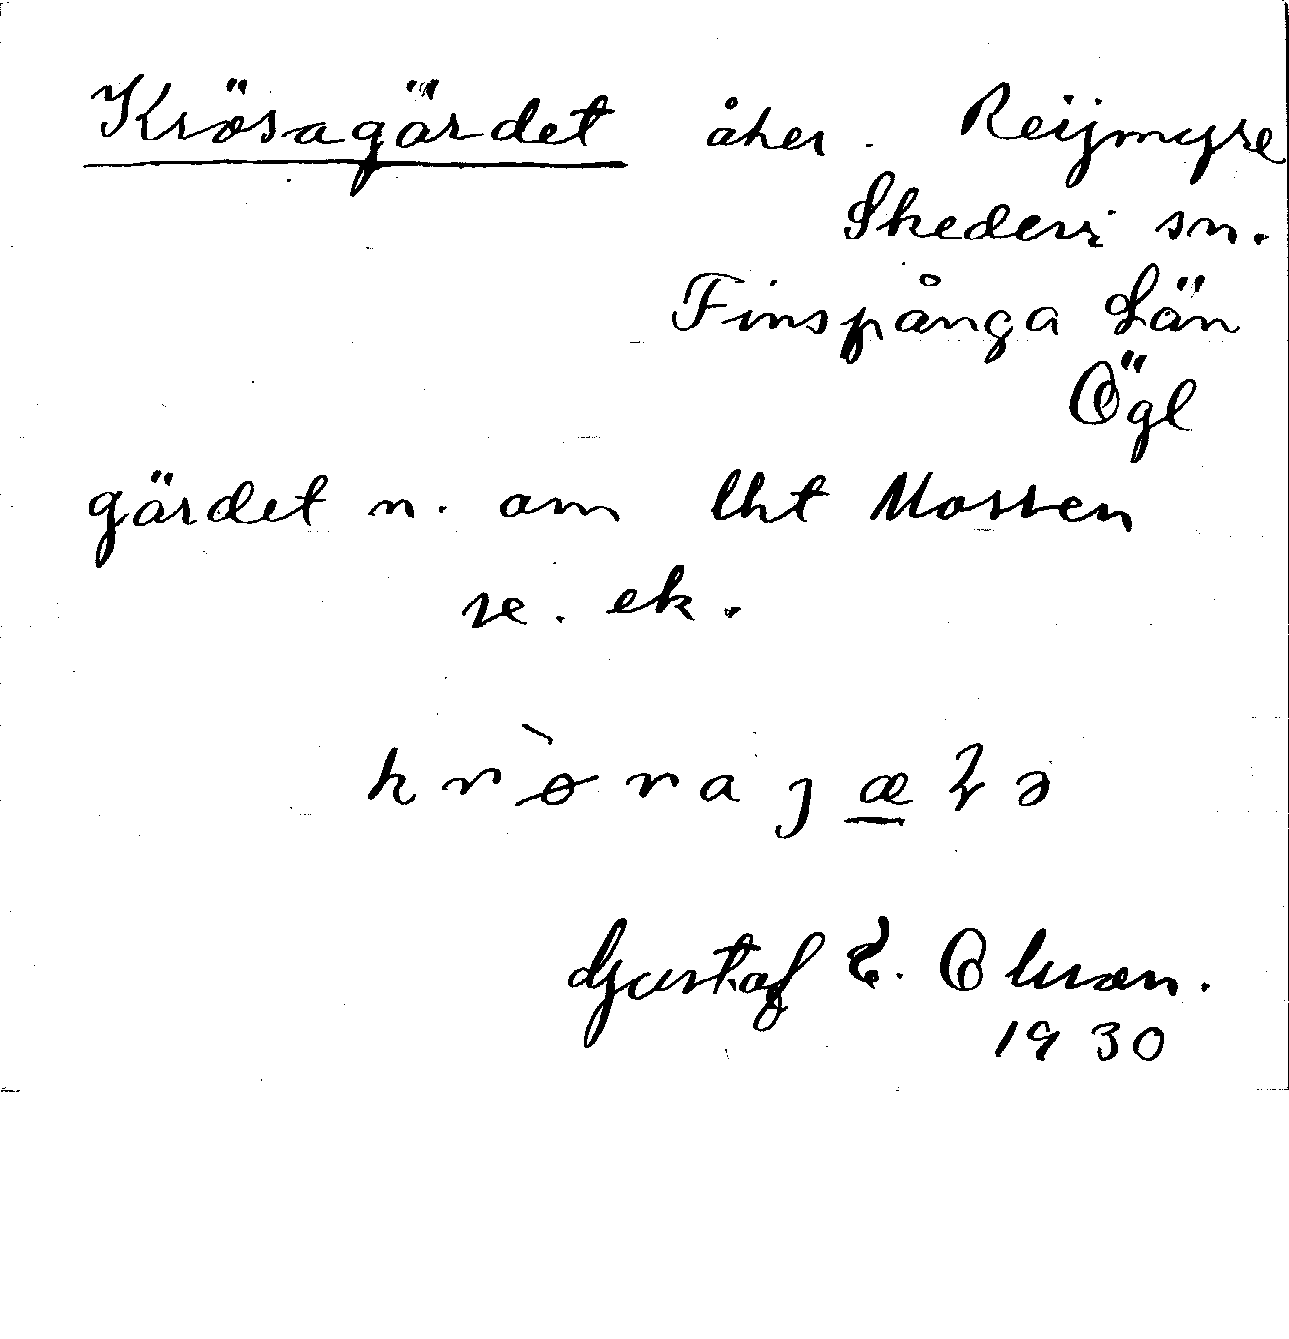 Krösagärdet åker. Reijmyre
Skedevi sn.
Finspånga Län
Ögl
gärdet n. om lht Mossen
se. ek.
Gustaf E. Olsson.
1930